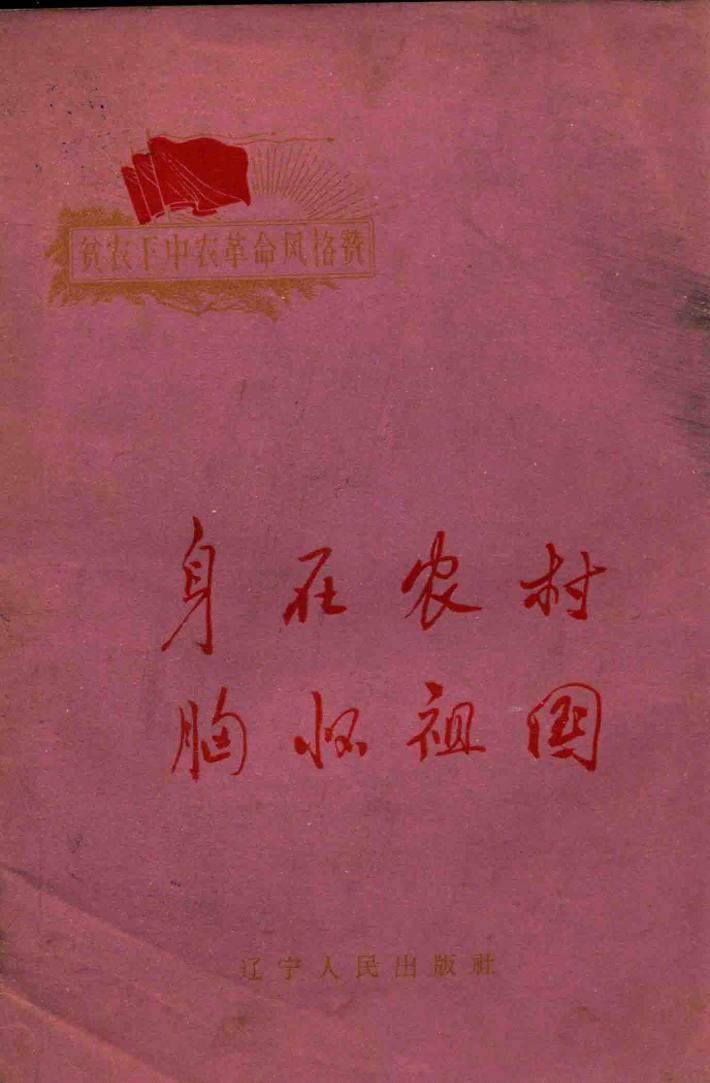 贫农下中农革命风格赞
身在农村
胸怀祖国
辽宁人民出版社